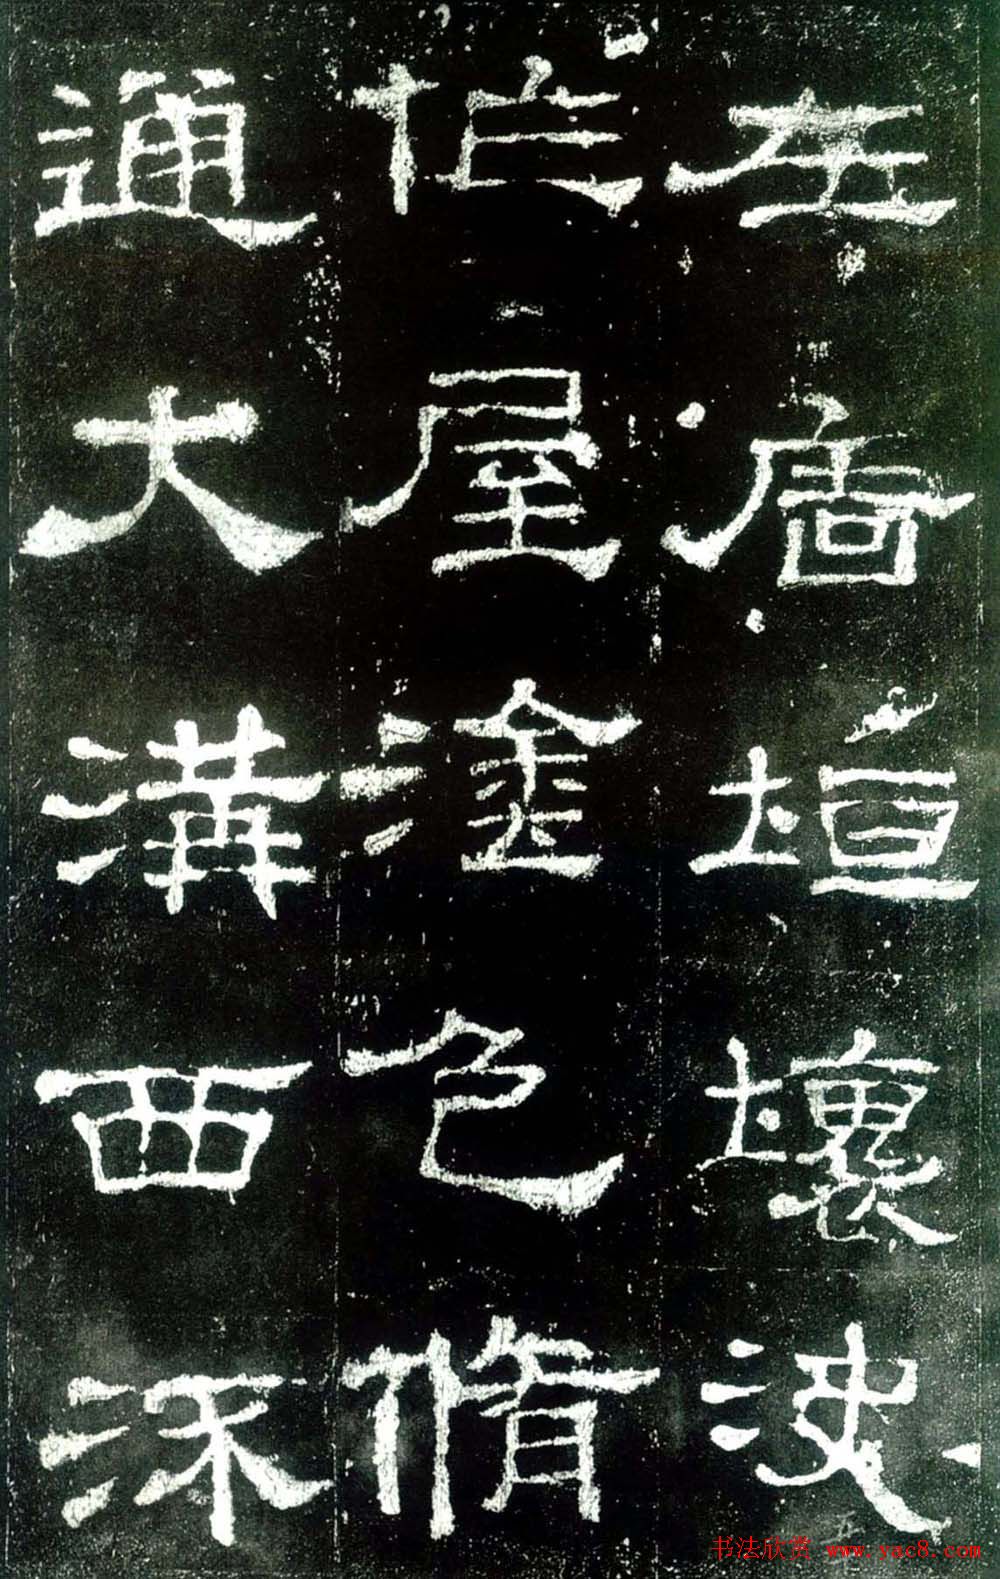 左廧垣壞決
作屋塗色脩
通大溝西流
书法欣赏 www.yac8.com